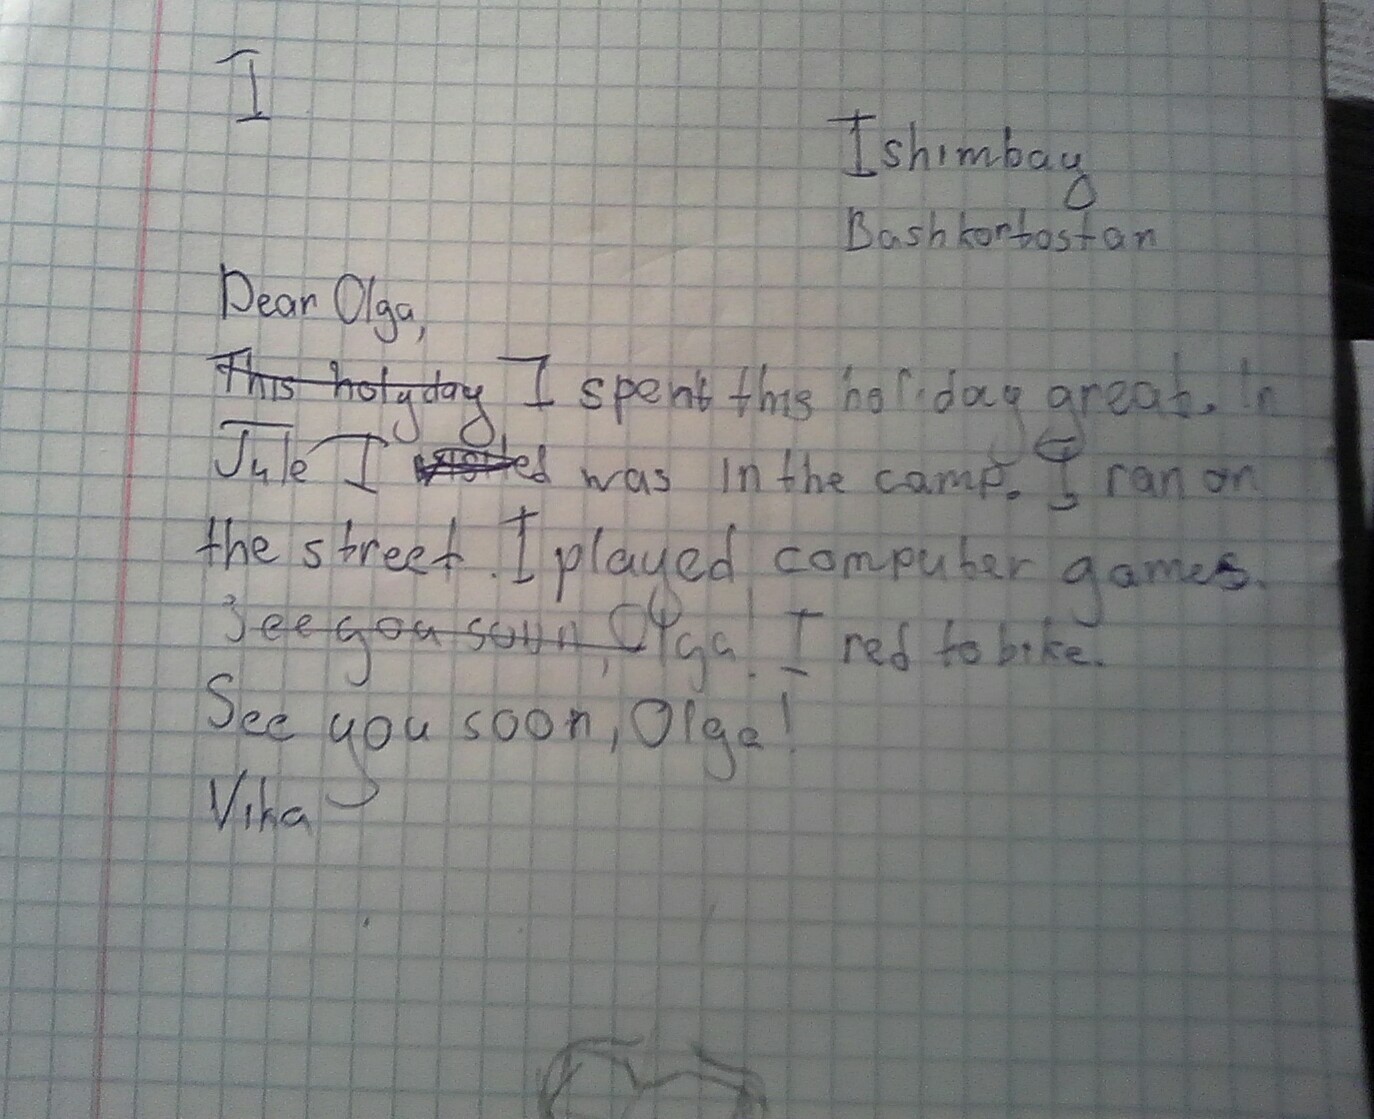 I
Ishimbay
Bashkortostan
Dear Olga,
This holyday I spent this holiday great. In
Jule I visited was in the camp. I ran on
the street. I played computer games.
See you soon, Olga! I red to bike.
See you soon, Olga!
Vika